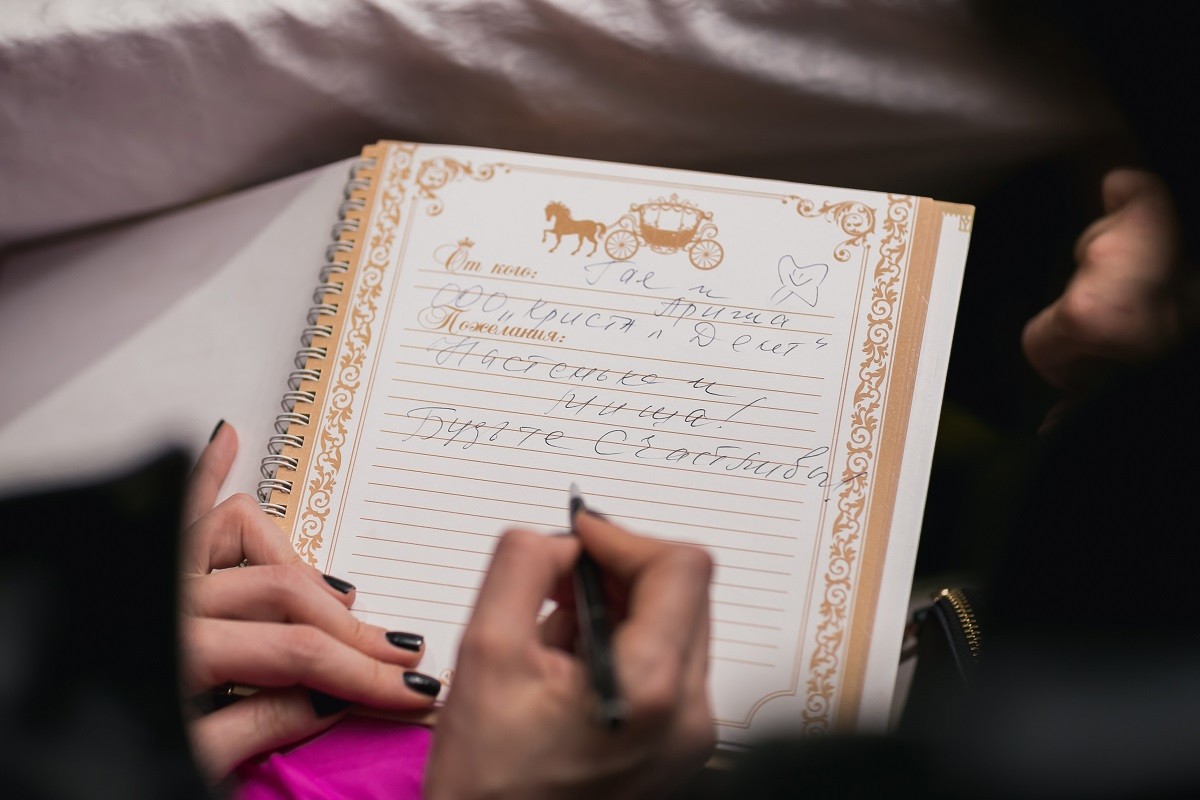 От кого: Гая и
Ариша
ООО „Криста Дент"
Пожелания:
Настенька и
Миша!
Будьте счастливы!